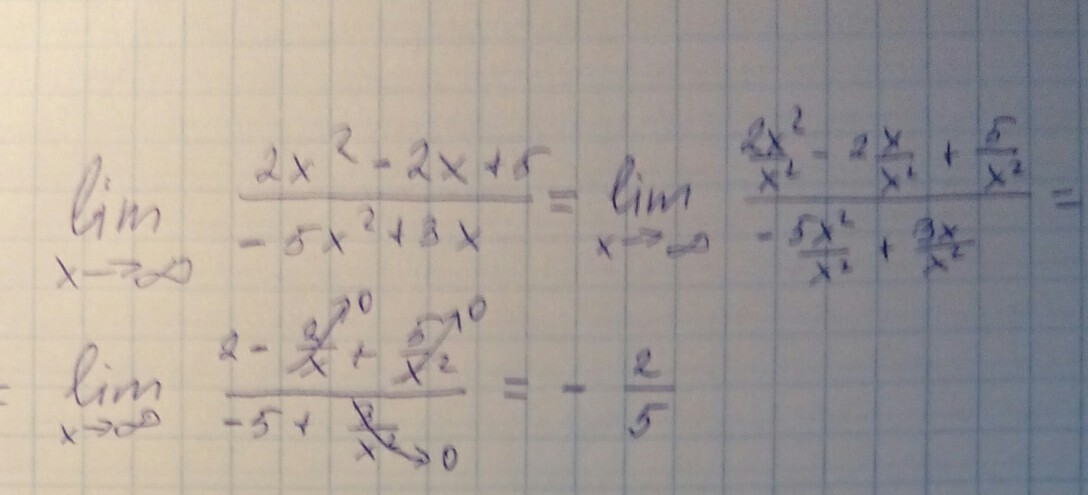 lim x→∞ (2x² - 2x + 5)/(-5x² + 3x) = lim x→∞ (2x²/x² - 2x/x² + 5/x²)/(-5x²/x² + 3x/x²) =
= lim x→∞ (2 - 2/x↗0 + 5/x²↗0)/(-5 + 3/x²→0) = - 2/5